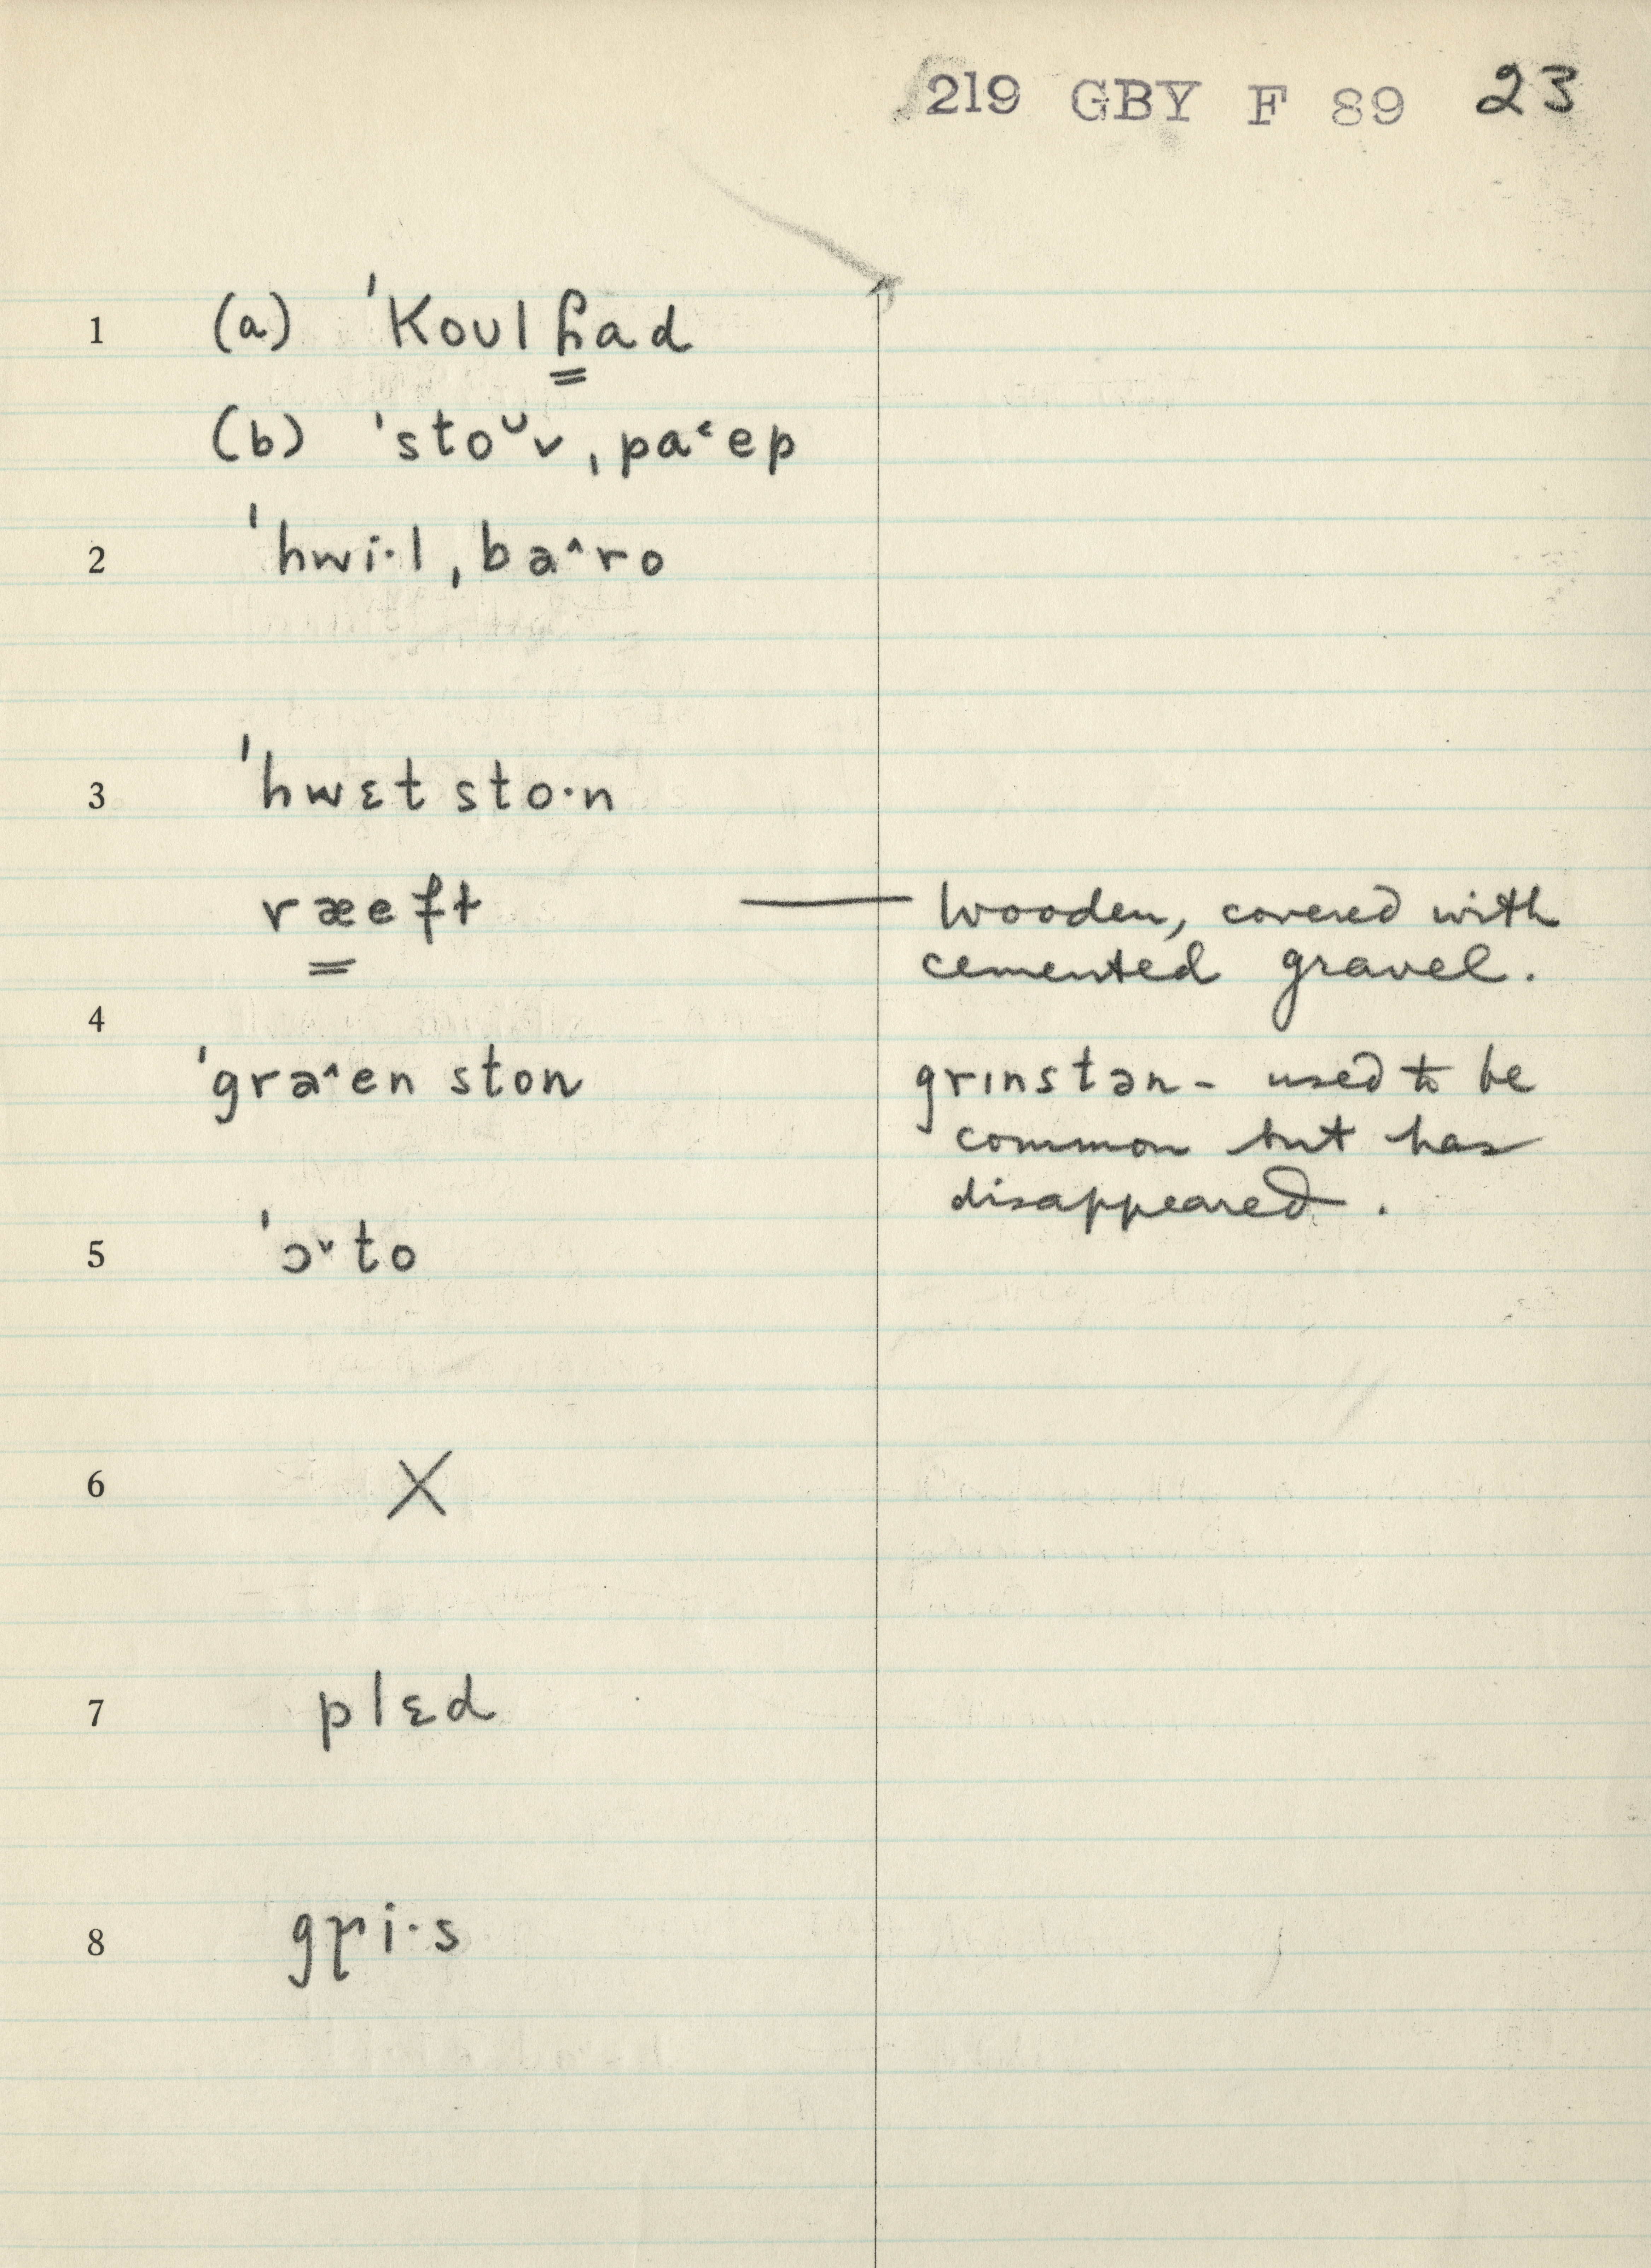 219 GBY F 89 23
1 (a) ˈKoulɦad
(b) ˈstoᴗv ˌpa˂ep
2 ˈhwi·l ˌba˄ro
3 ˈhwɛt sto·n
ræeft — Wooden, covered with
cemented gravel.
4
ˈgra˄en ston grɪnstən - used to be
common but has
disappeared.
5 ˈɔ˅to
6 X
7 plɛd
8 gɼi·s